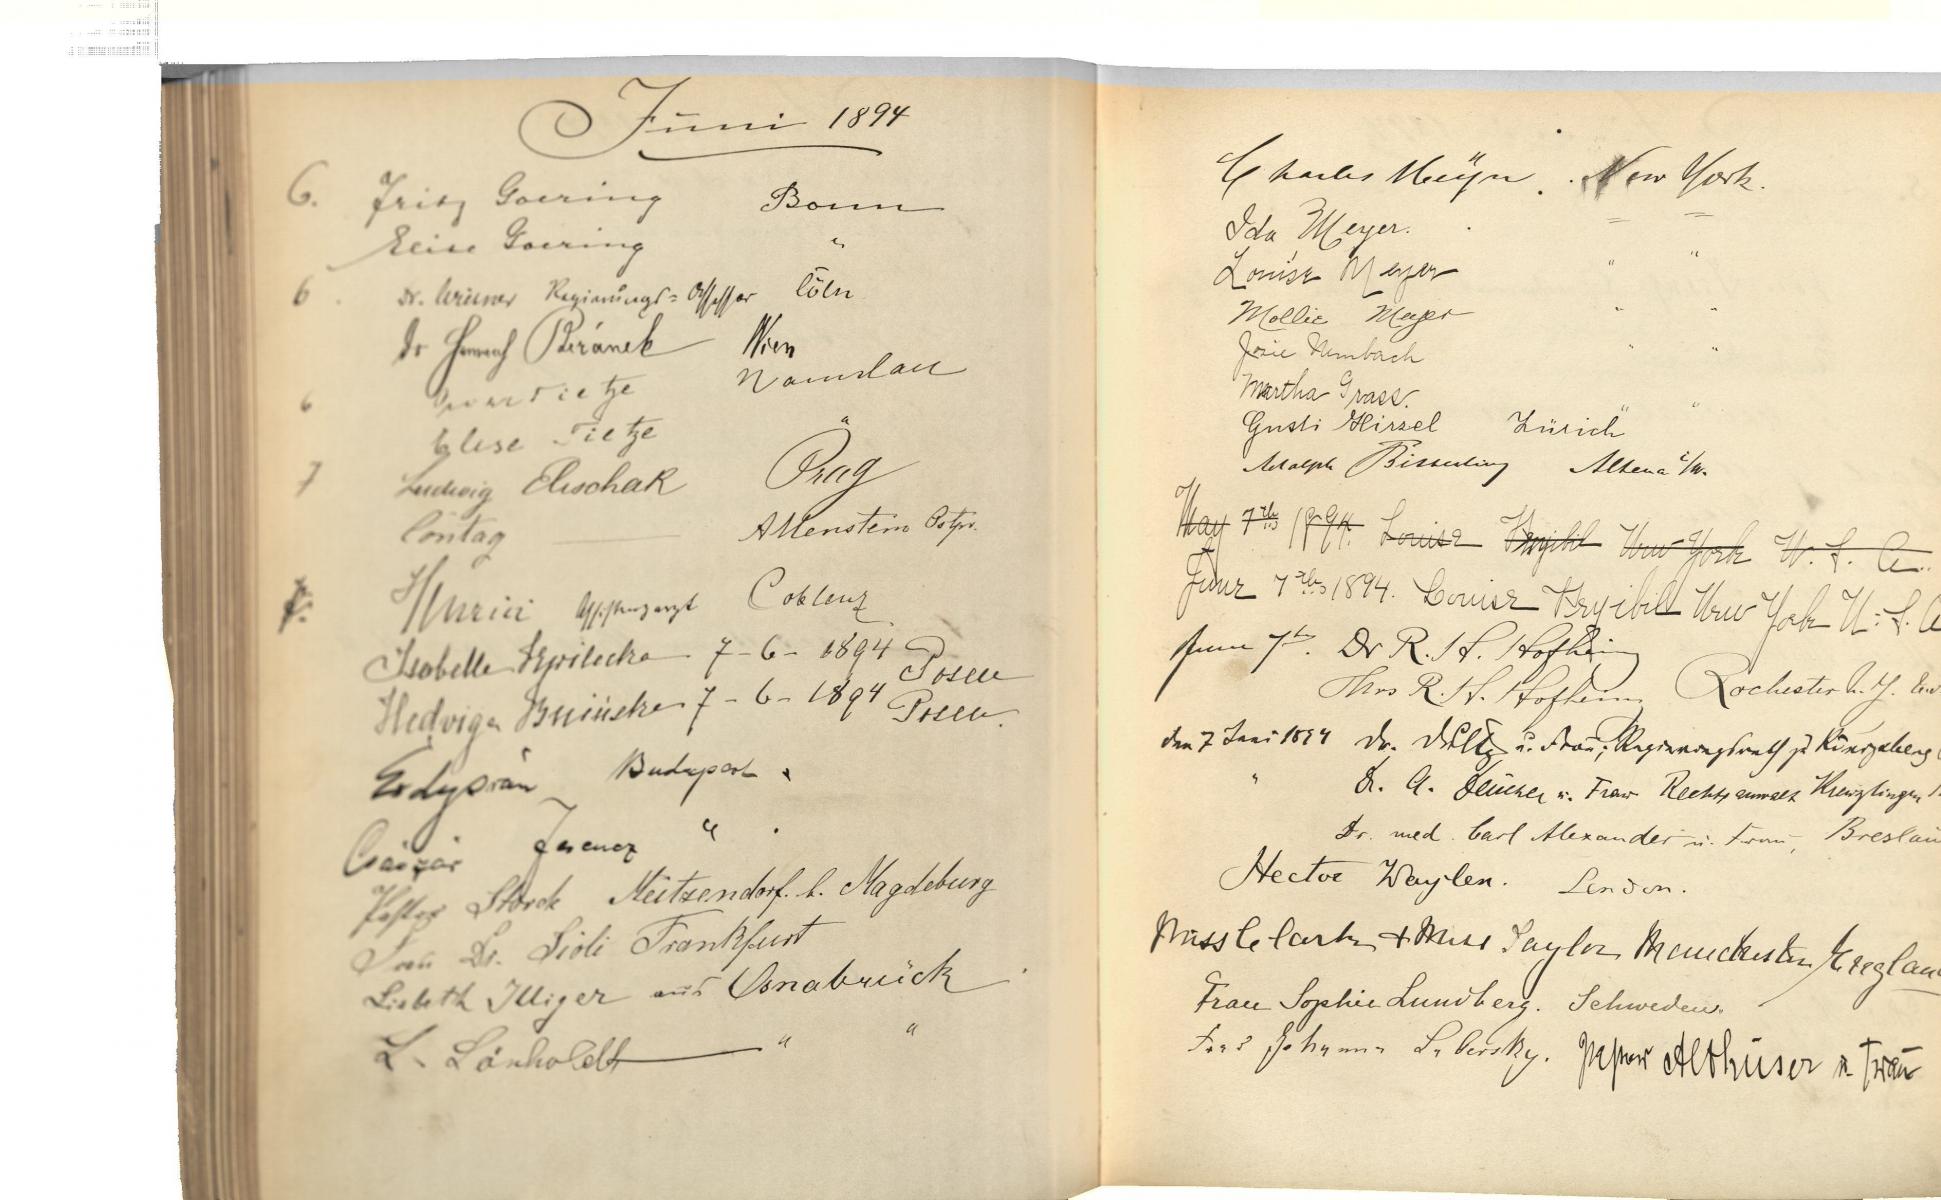 Juni 1894
6. Fritz Goering Bonn
Elise Goering "
6. Dr. Regierungs-Assessor Cöln
Dr Beránek Wien
6 Tietze Namslau
Elise Tietze "
7 Ludwig Elischak Prag
Contag Allenstein Ostpr.
7. Assistenzarzt Coblenz
Isabella 7-6-1894 Posen
Hedviga Bnińska 7-6-1894 Posen
Budapest
Császár Ferencz "
Pastor Storck Meitzendorf b. Magdeburg
Frau Dr. Sioli Frankfurt
Lisbeth Illiger aus Osnabrück
L. Lönholdt " "
Charles Meyer. New York.
Ida Meyer. = =
Louise Meyer " "
Mollie Meyer " "
Josie " "
Martha Grass. " "
Gusti Hirzel Zürich
Adolph Altena i/W.
May 7th 1894. Louise New York U. S. A.
June 7th 1894. Louise New York U. S. A
June 7th. Dr R. H. Hofheinz
Mrs R. H. Hofheinz Rochester N. Y.
den 7 Juni 1894 Dr. u. Frau, Regierungsrath zu Königsberg
" Dr. A. u. Frau Rechtsanwalt Kreuzlingen
Dr. med. Carl Alexander u. Frau, Breslau
Hector Waylen. London.
Miss Clarke + Miss Taylor Manchester England
Frau Sophie Lundberg. Schweden.
Frau Johanna Althüser u. Frau